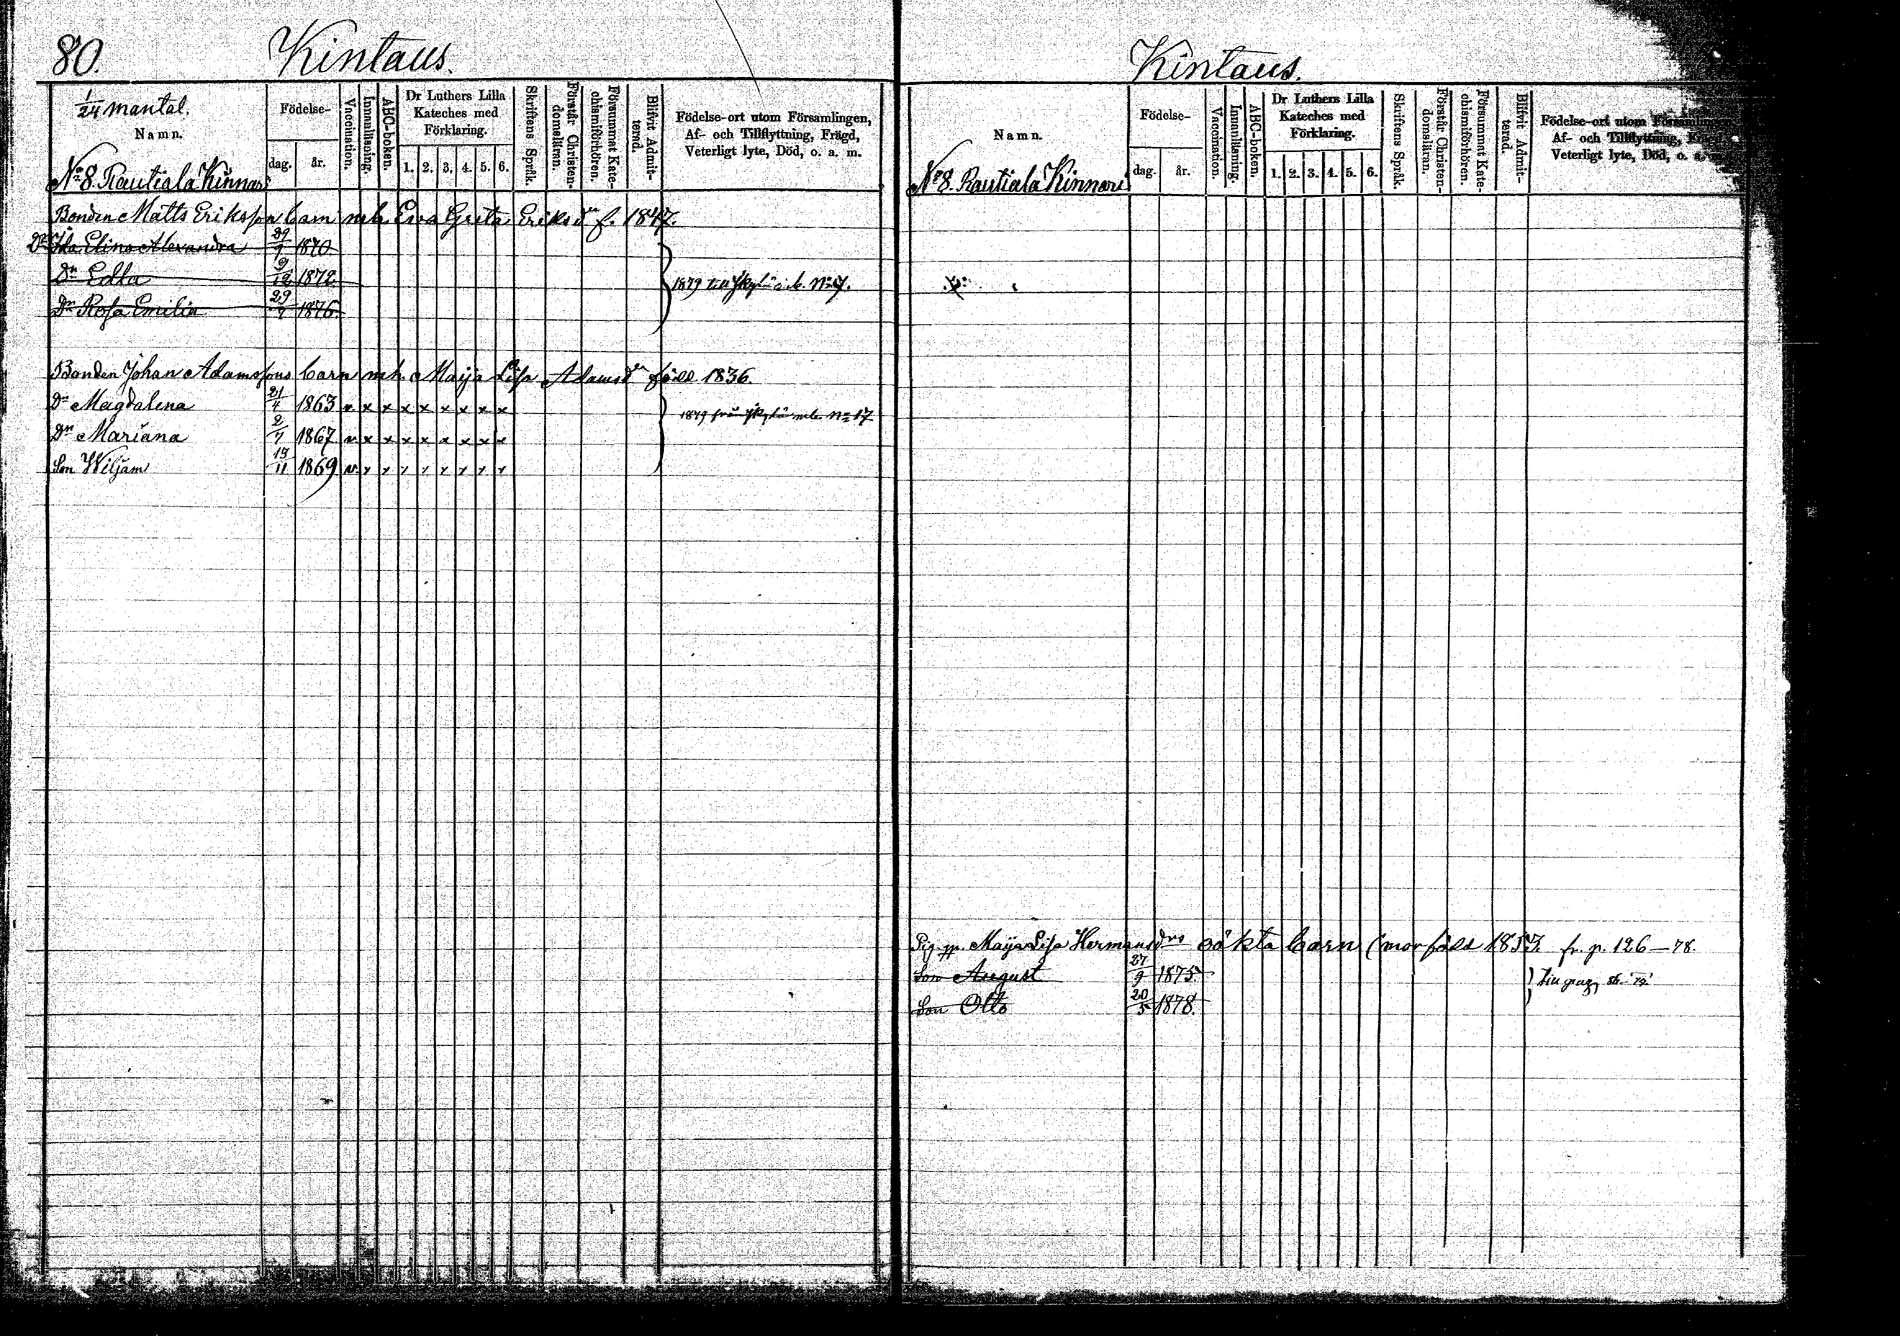 80. Kintaus.
1/24 mantal.
Namn.
Födelse-
dag. år.
Vaccination.
Innanläsning.
ABC-boken.
Dr Luthers Lilla
Kateches med
Förklaring.
1. 2. 3. 4. 5. 6.
Skriftens Språk.
Förstår Christen-
domsläran.
Försummat Kate-
chismiförhören.
Blifvit Admit-
terad.
Födelse-ort utom Församlingen,
Af- och Tillflyttning, Frägd,
Veterligt lyte, Död, o. a. m.
No 8. Rautiala Kinnari
Bonden Matts Eriksson barn mh. Eva Greta Eriksdr f. 1847.
Dr Ida Elina Alexandra 29/9 1870
Dr Edla 9/12 1872
Dr Rosa Emilia 29/7 1876.
1879 till No 7.
Bonden Johan Adamssons barn mh. Maija Lisa Adamsdr född 1836.
Dr Magdalena 21/4 1863 v x x x x x x x x
Dr Mariana 2/7 1867 v x x x x x x x x
Son Wiljam 19/11 1869 v x x x x x x x x
1879 från No 17
Kintaus.
Namn.
Födelse-
dag. år.
Vaccination.
Innanläsning.
ABC-boken.
Dr Luthers Lilla
Kateches med
Förklaring.
1. 2. 3. 4. 5. 6.
Skriftens Språk.
Förstår Christen-
domsläran.
Försummat Kate-
chismiförhören.
Blifvit Admit-
terad.
Födelse-ort utom
Af- och Tillflyttning,
Veterligt lyte, Död, o. a.
No 8. Rautiala Kinnari
Maija Lisa Hermansdrs oäkta barn (mor född 1857. fr. p. 126—78.
Son August 27/9 1875.
Son Otto 20/5 1878.